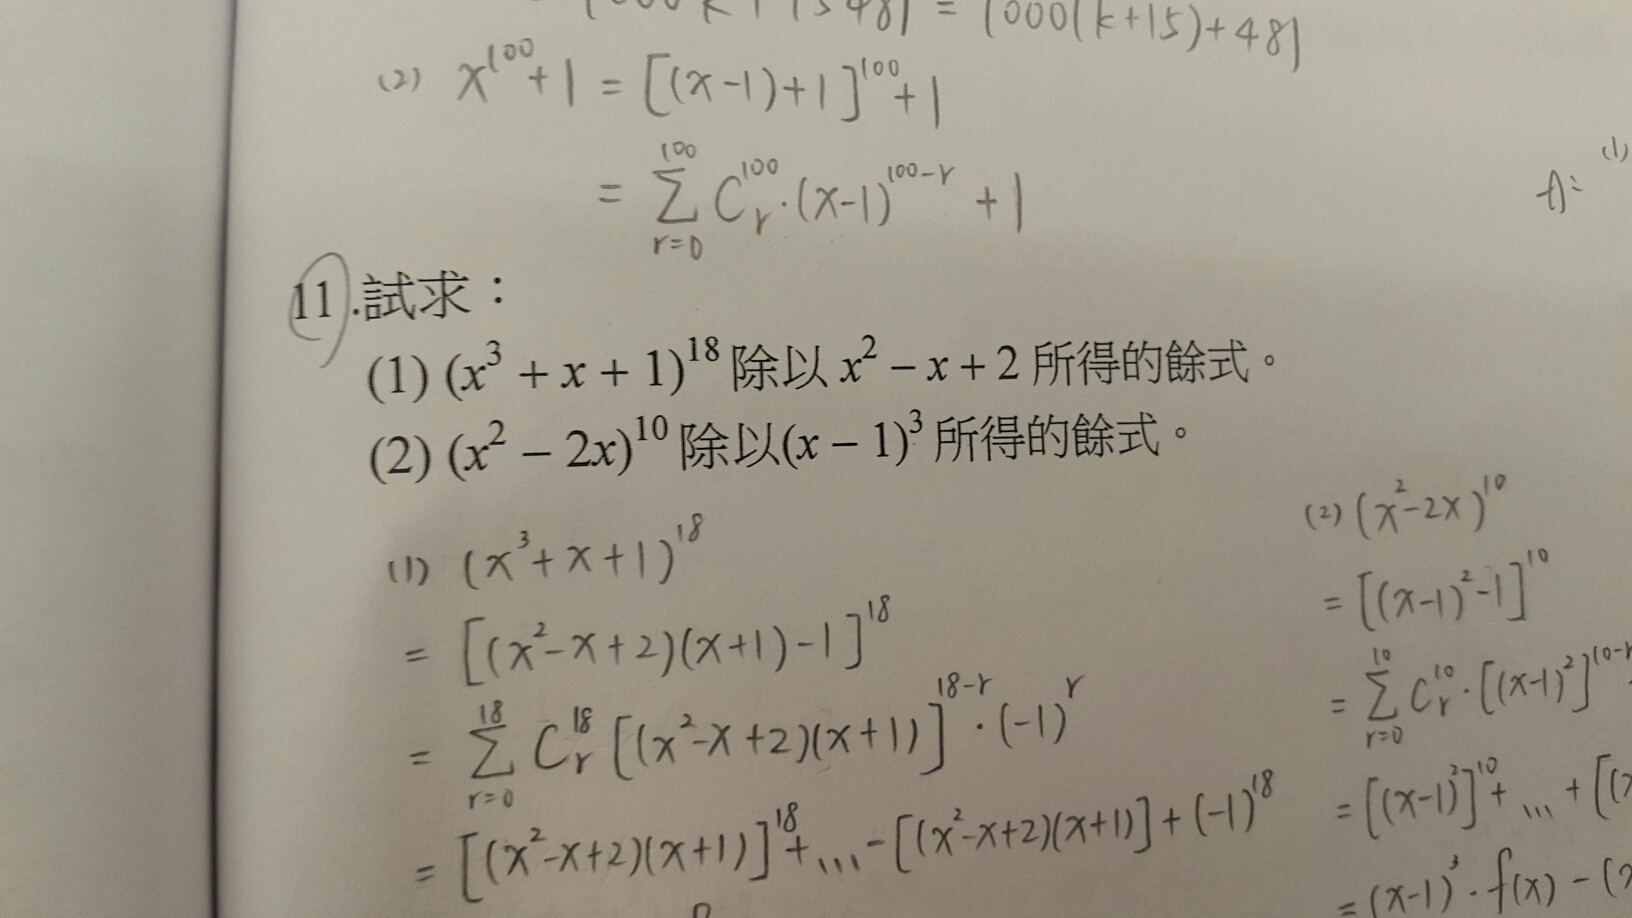 = 1000k+15481 = 1000(k+15)+481
(2) x¹⁰⁰+1 = [(x-1)+1]¹⁰⁰+1
= Σ_{r=0}^{100} C_r^{100}·(x-1)^{100-r} +1
(1)
11.試求：
(1) (x³ + x + 1)¹⁸ 除以 x² − x + 2 所得的餘式。
(2) (x² − 2x)¹⁰ 除以(x − 1)³ 所得的餘式。
(1) (x³+x+1)¹⁸
= [(x²-x+2)(x+1)-1]¹⁸
= Σ_{r=0}^{18} C_r^{18} [(x²-x+2)(x+1)]^{18-r}·(-1)^r
= [(x²-x+2)(x+1)]¹⁸+...-[(x²-x+2)(x+1)]+(-1)¹⁸
(2) (x²-2x)¹⁰
= [(x-1)²-1]¹⁰
= Σ_{r=0}^{10} C_r^{10}·[(x-1)²]^{10-r}
= [(x-1)²]¹⁰+...+[(
= (x-1)³·f(x)-(